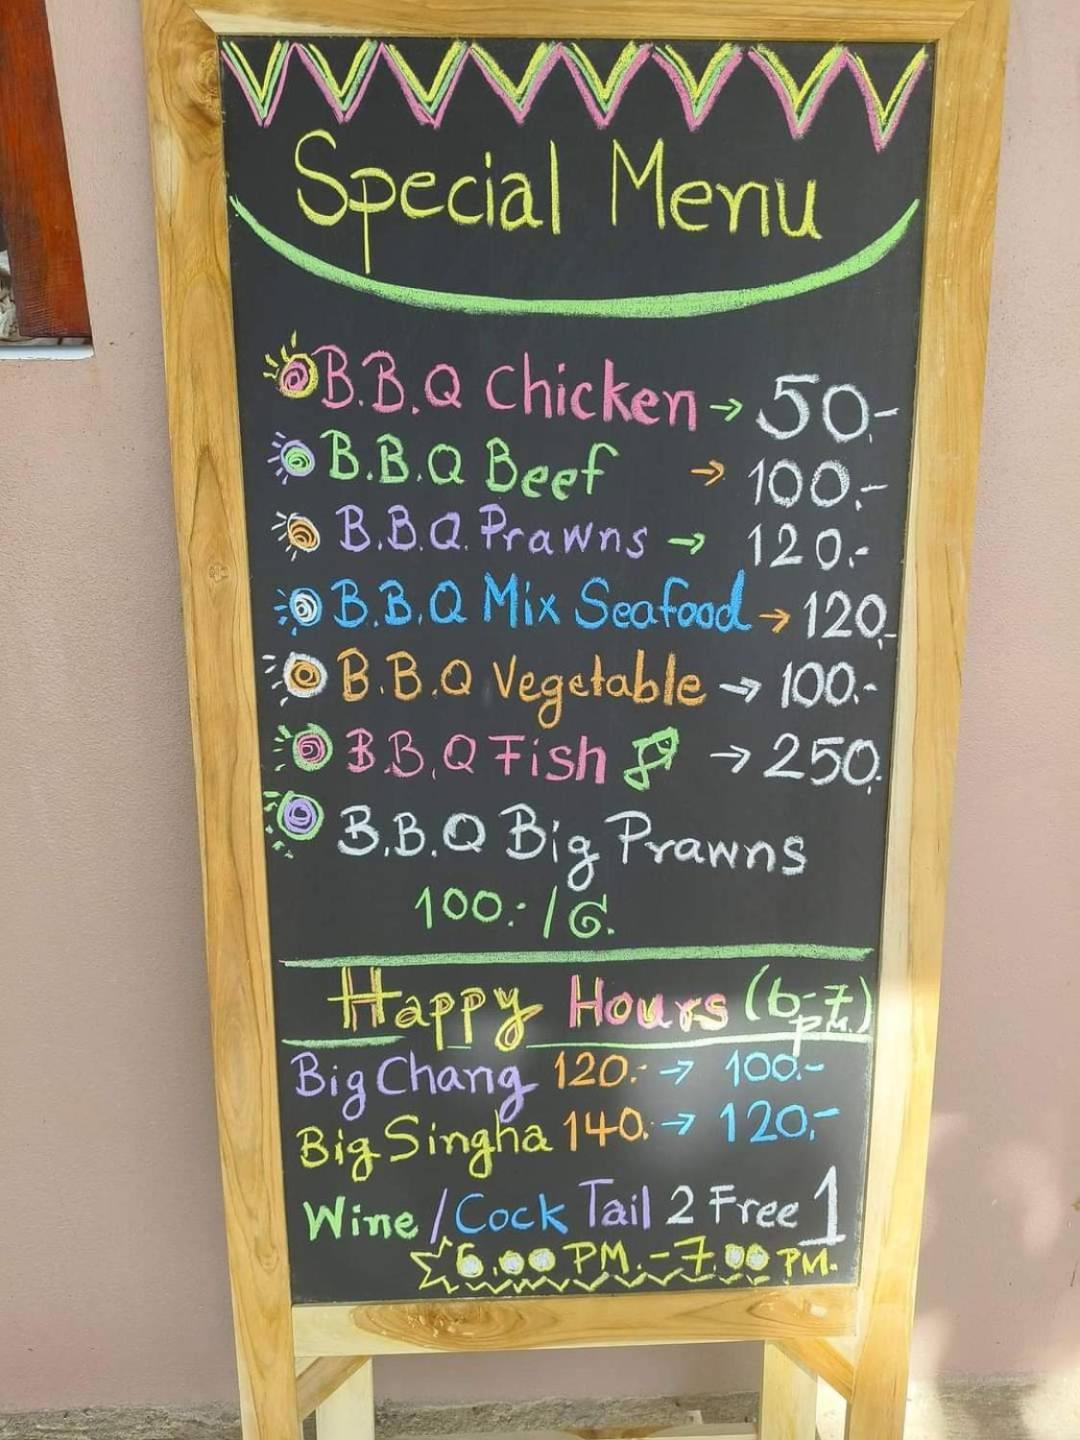 Special Menu
B.B.Q Chicken → 50.-
B.B.Q Beef → 100.-
B.B.Q. Prawns → 120.-
B.B.Q Mix Seafood → 120.-
B.B.Q Vegetable → 100.-
B.B.Q Fish → 250.
B.B.Q Big Prawns
100.-/G.
Happy Hours (6-7 p.m.)
Big Chang 120.- → 100.-
Big Singha 140. → 120.-
Wine / Cock Tail 2 Free 1
6.00 PM. - 7.00 PM.